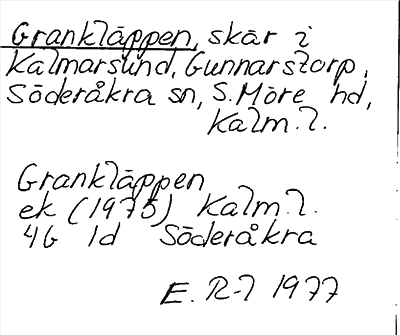 Grankläppen, skär i
Kalmarsund, Gunnarstorp,
Söderåkra sn, S. Möre hd,
Kalm. l.
Grankläppen
ek (1975) Kalm. l.
4G 1d Söderåkra
E. R-l 1977